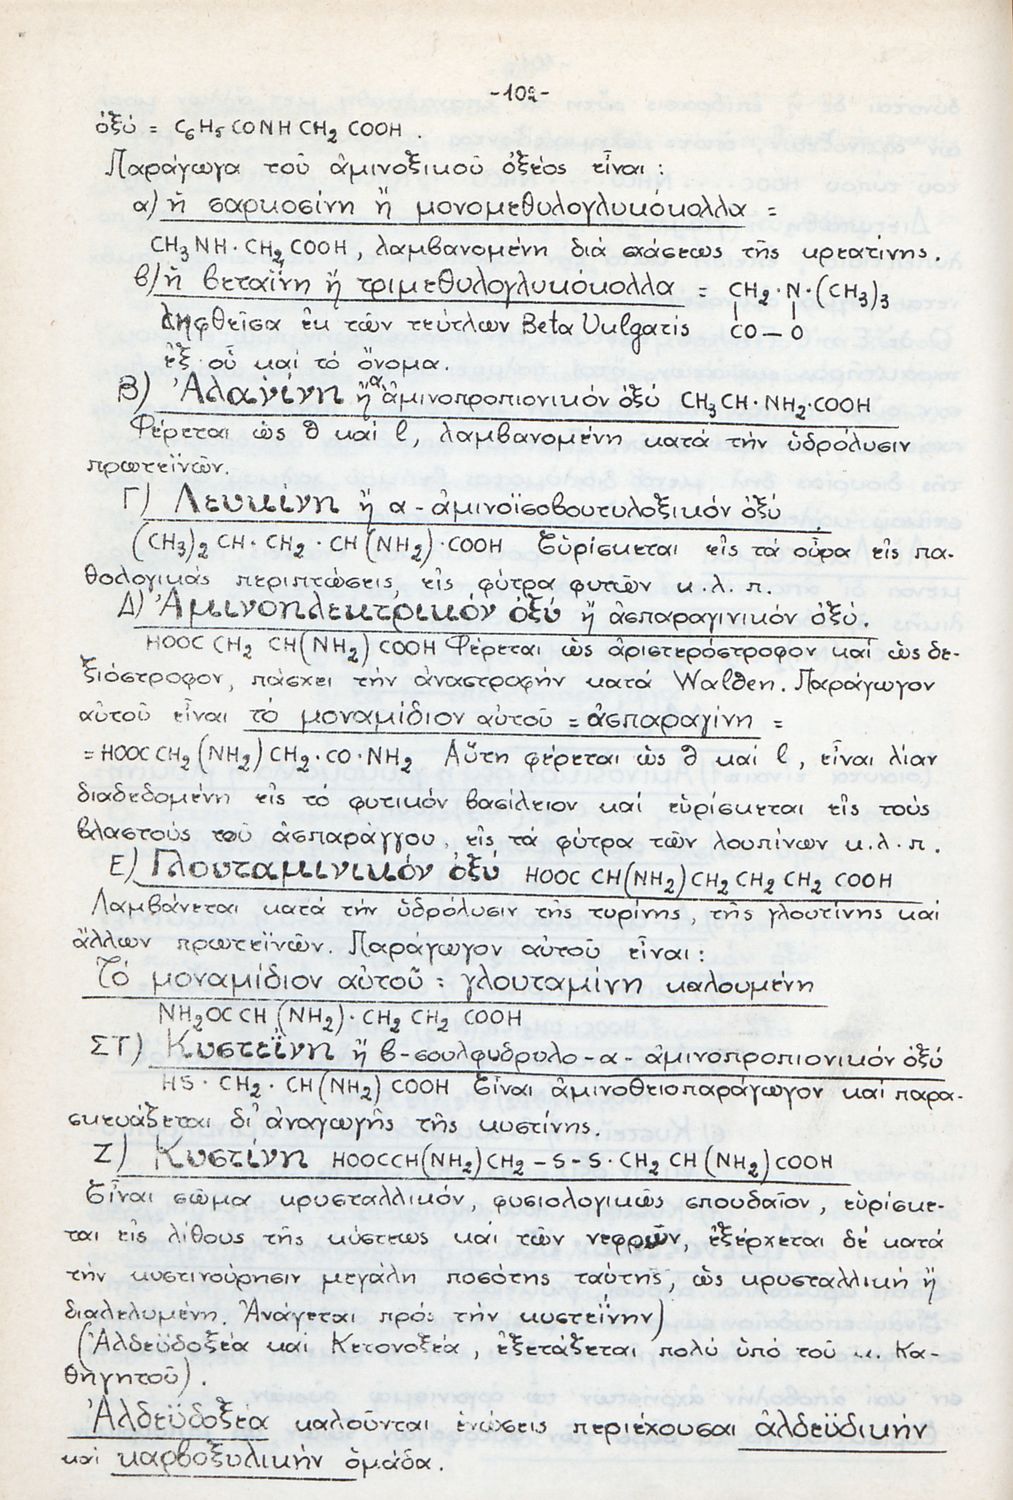 -102-
ὀξύ = C₆H₅CONHCH₂COOH.
Παράγωγα τοῦ ἀμινοξικοῦ ὀξέος εἶναι:
α) ἡ σαρκοσίνη ἤ μονομεθυλογλυκοκολλα =
CH₃NH·CH₂COOH, λαμβανομένη διά σχάσεως τῆς κρεατίνης.
β) ἡ βεταΐνη ἤ τριμεθυλογλυκόκολλα = CH₂·N·(CH₃)₃
ληφθεῖσα ἐκ τῶν τεύτλων Beta Vulgaris CO—O
ἐξ οὗ καί τό ὄνομα.
Β) Ἀλανίνη ἤ α ἀμινοπροπιονικόν ὀξύ CH₃CH·NH₂·COOH
Φέρεται ὡς d καί l, λαμβανομένη κατά τήν ὑδρόλυσιν
πρωτεϊνῶν.
Γ) Λευκίνη ἤ α-ἀμινοϊσοβουτυλοξικόν ὀξύ
(CH₃)₂CH·CH₂·CH(NH₂)·COOH Εὑρίσκεται εἰς τά οὖρα εἰς πα-
θολογικάς περιπτώσεις εἰς φύτρα φυτῶν κ.λ.π.
Δ) Ἀμινοηλεκτρικόν ὀξύ ἤ ἀσπαραγινικόν ὀξύ.
HOOCCH₂CH(NH₂)COOH Φέρεται ὡς ἀριστερόστροφον καί ὡς δε-
ξιόστροφον, πάσχει τήν ἀναστροφήν κατά Walden. Παράγωγον
αὐτοῦ εἶναι τό μοναμίδιον αὐτοῦ = ἀσπαραγίνη =
= HOOCCH₂(NH₂)CH₂·CO·NH₂ Αὕτη φέρεται ὡς d καί l, εἶναι λίαν
διαδεδομένη εἰς τό φυτικόν βασίλειον καί εὑρίσκεται εἰς τούς
βλαστούς τοῦ ἀσπαράγγου, εἰς τά φύτρα τῶν λουπίνων κ.λ.π.
Ε) Γλουταμινικόν ὀξύ HOOCCH(NH₂)CH₂CH₂CH₂COOH
Λαμβάνεται κατά τήν ὑδρόλυσιν τῆς τυρίνης, τῆς γλουτίνης καί
ἄλλων πρωτεϊνῶν. Παράγωγον αὐτοῦ εἶναι:
Τό μοναμίδιον αὐτοῦ = γλουταμίνη καλουμένη
NH₂OCCH(NH₂)·CH₂CH₂COOH
ΣΤ) Κυστεΐνη ἤ β-σουλφυδρυλο-α-ἀμινοπροπιονικόν ὀξύ
HS·CH₂·CH(NH₂)COOH Εἶναι ἀμινοθειοπαράγωγον καί παρα-
σκευάζεται δι' ἀναγωγῆς τῆς κυστίνης.
Ζ) Κυστίνη HOOCCH(NH₂)CH₂—S-S·CH₂CH(NH₂)COOH
Εἶναι σῶμα κρυσταλλικόν, φυσιολογικῶς σπουδαῖον, εὑρίσκε-
ται εἰς λίθους τῆς κύστεως καί τῶν νεφρῶν, ἐξέρχεται δέ κατά
τήν κυστινούρησιν μεγάλη ποσότης ταύτης, ὡς κρυσταλλική ἤ
διαλελυμένη. Ἀνάγεται πρός τήν κυστεΐνην)
(Ἀλδεϋδοξέα καί Κετονοξέα, ἐξετάζεται πολύ ὑπό τοῦ κ. Κα-
θηγητοῦ).
Ἀλδεϋδοξέα καλοῦνται ἑνώσεις περιέχουσαι ἀλδεϋδικήν
καί καρβοξυλικήν ὁμάδα.